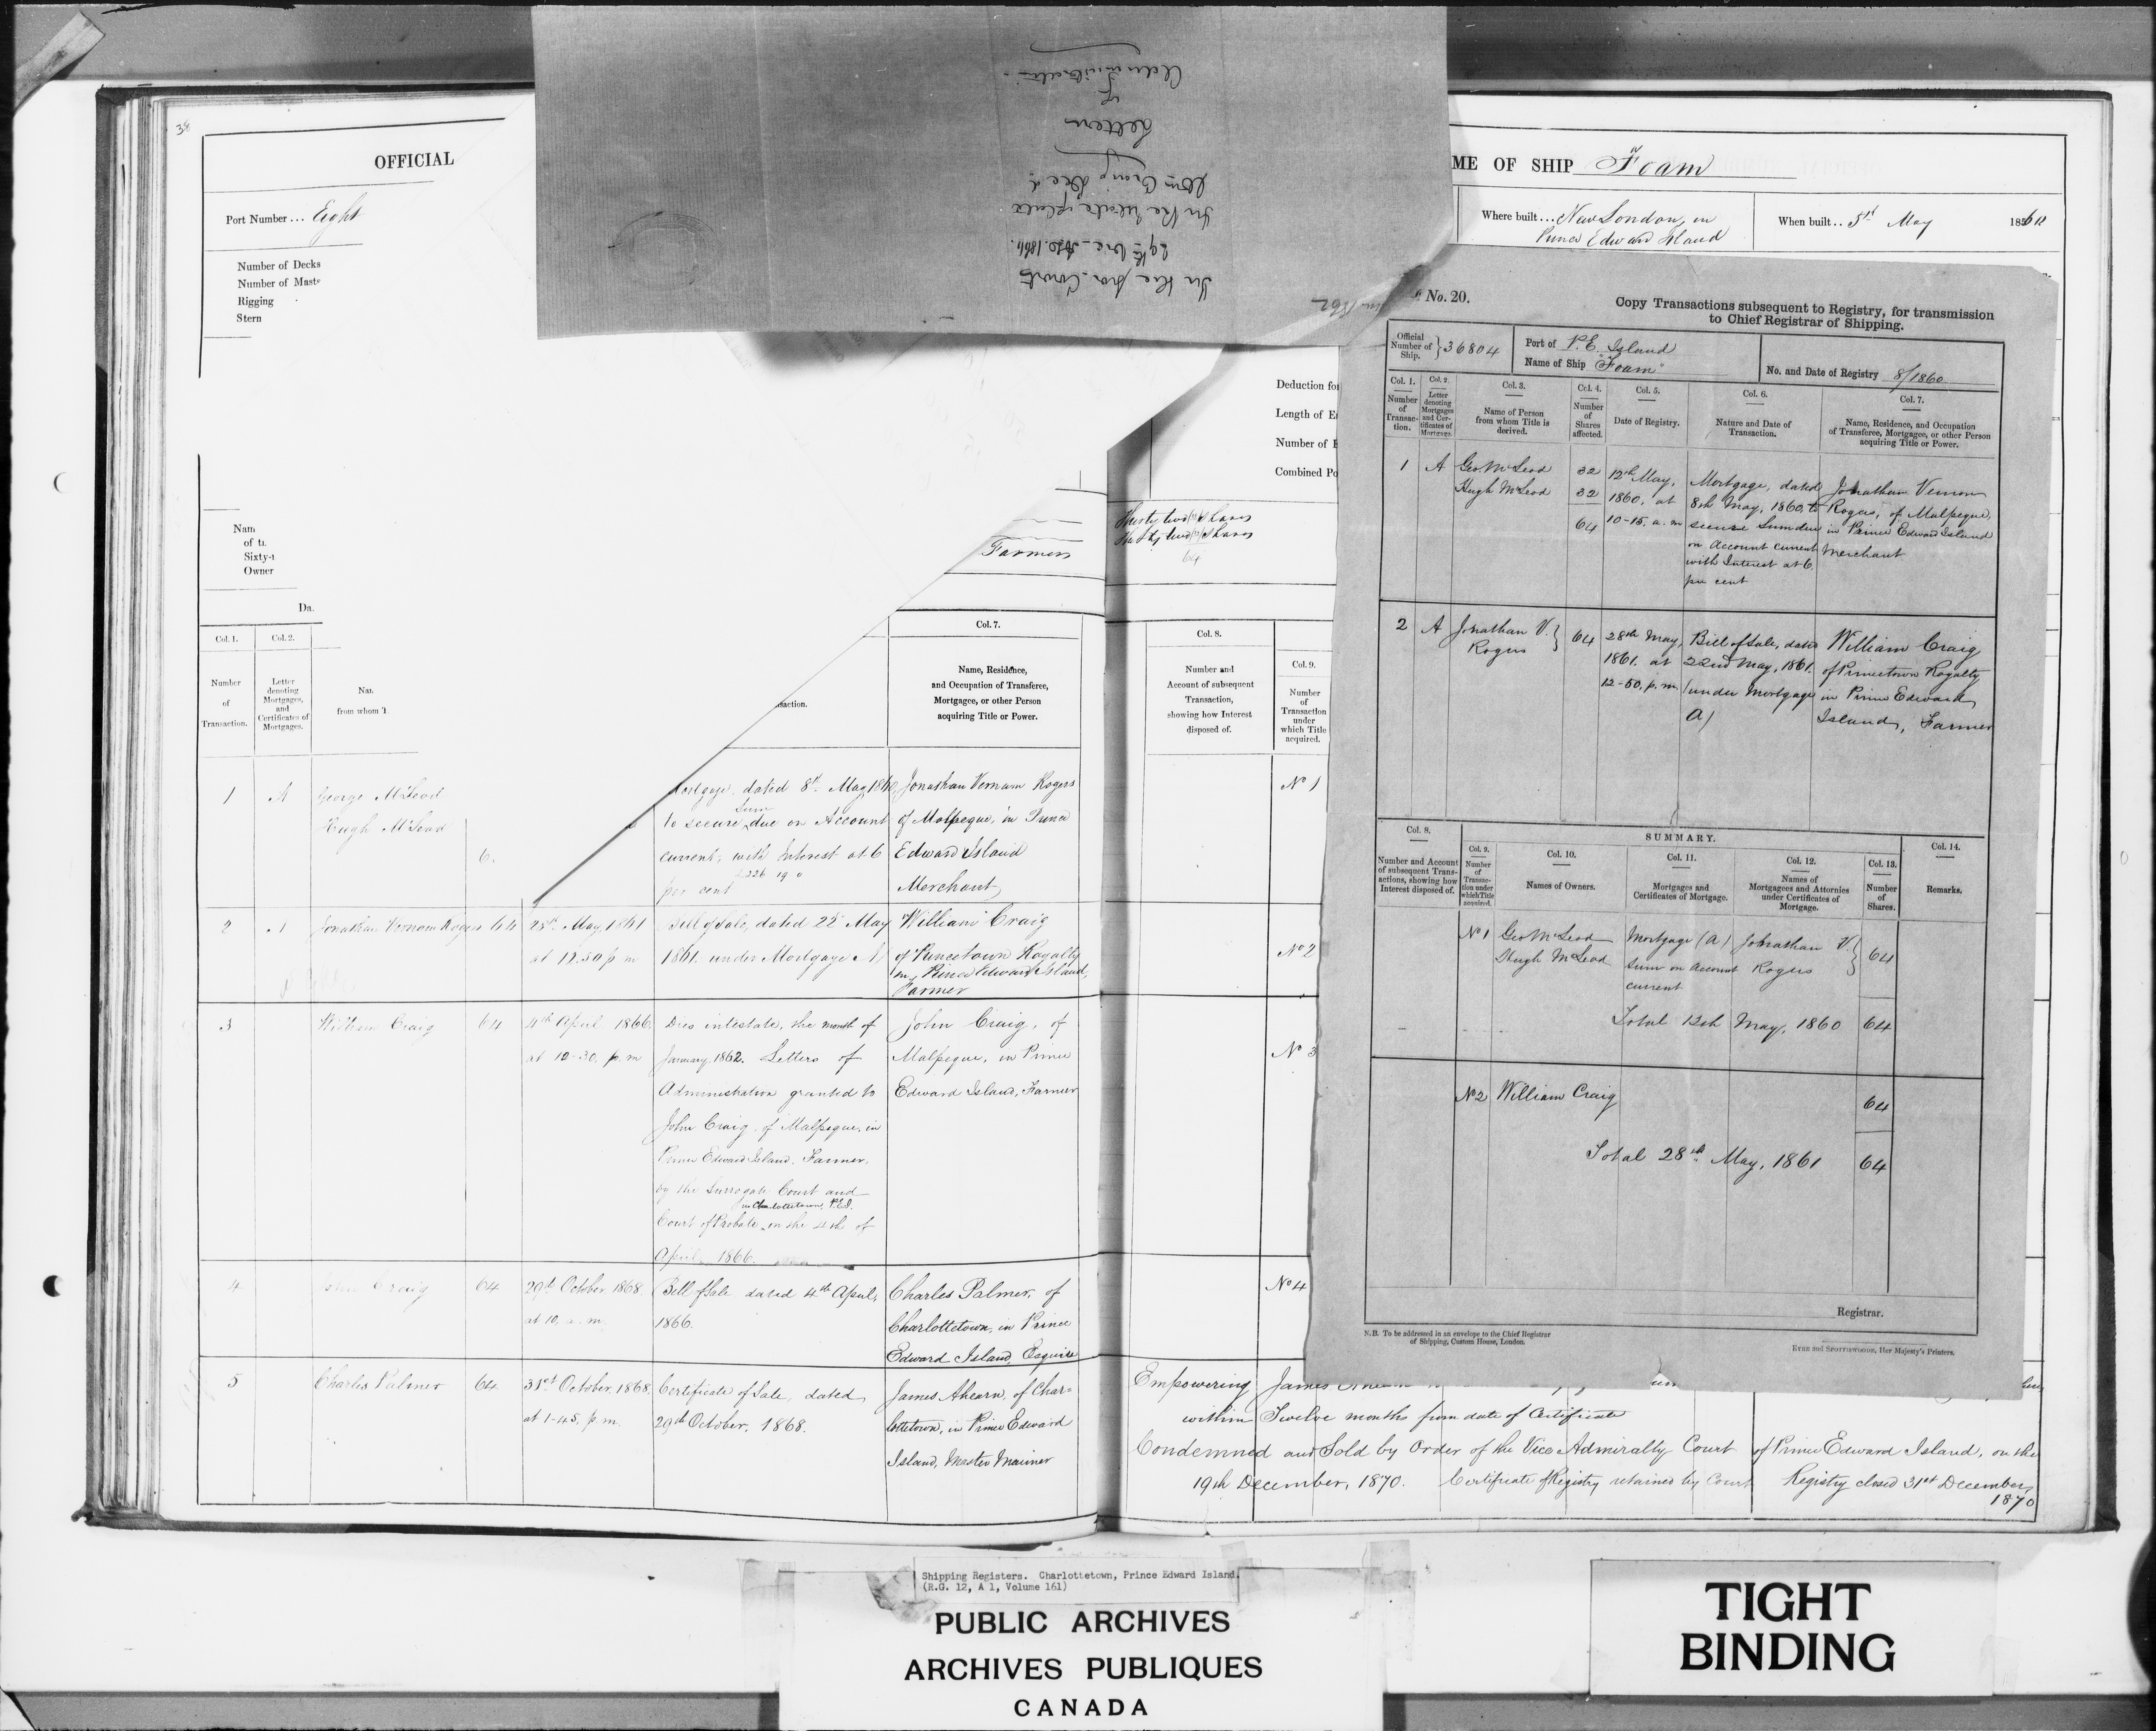 38
OFFICIAL
Port Number ... Eight
Number of Decks
Number of Maste
Rigging
Stern
Nam
of t
Sixty-
Owner
Da
Farmers
Col. 1.
Number
of
Transaction.
Col. 2.
Letter
denoting
Mortgages,
and
Certificates of
Mortgages.
Nar
from whom T
saction.
Col. 7.
Name, Residence,
and Occupation of Transferee,
Mortgagee, or other Person
acquiring Title or Power.
1 A George McLeod
Hugh McLeod
6
Mortgage, dated 8th May 1860
to secure sum due on Account
current, with Interest at 6
per cent
£226 19 0
Jonathan Vernam Rogers
of Malpeque, in Prince
Edward Island
Merchant
2 A Jonathan Vernam Rogers 64
28th May 1861
at 12.50 p m
Bill of Sale, dated 22d May
1861. under Mortgage A
William Craig
of Princetown Royalty
in Prince Edward Island,
Farmer
3 William Craig 64
4th April 1866.
at 12-30. p. m
Dies intestate, the month of
January, 1862. Letters of
Administration granted to
John Craig, of Malpeque, in
Prince Edward Island, Farmer,
by the Surrogate Court and
in Charlottetown, P.E.I.
Court of Probate, on the 4th of
April 1866.
John Craig, of
Malpeque, in Prince
Edward Island, Farmer
4 John Craig 64
29th October 1868
at 10, a. m.
Bill of Sale dated 4th April,
1866.
Charles Palmer, of
Charlottetown, in Prince
Edward Island, Esquire
5 Charles Palmer 64
31st October, 1868.
at 1-45, p. m.
Certificate of Sale, dated
29th October, 1868.
James Ahearn, of Char=
lottetown, in Prince Edward
Island, Master Mariner
In the pro. Court
29th Vic. A.D. 1866.
In the Estate & effects
Wm Craig Decd.
Letters
of
Administration
ME OF SHIP "Foam"
Where built ... New London, in
Prince Edward Island
When built .. 5th May 1860
Deduction for
Length of E
Number of
Combined Po
Thirty two (32) Shares
Thirty two (32) Shares
64
Col. 8.
Number and
Account of subsequent
Transaction,
showing how Interest
disposed of.
Col. 9.
Number
of
Transaction
under
which Title
acquired.
No 1
No 2
No 3
No 4
Empowering James Ahearn
within Twelve months from date of Certificate
Condemned and Sold by Order of the Vice Admiralty Court of Prince Edward Island, on the
19th December, 1870. Certificate of Registry retained by Court Registry closed 31st December,
1870
No. 20.
Copy Transactions subsequent to Registry, for transmission
to Chief Registrar of Shipping.
Official
Number of
Ship.
36804
Port of P. E. Island
Name of Ship "Foam"
No. and Date of Registry 8/1860
Col. 1.
Number
of
Transac-
tion.
Col. 2.
Letter
denoting
Mortgages
and Cer-
tificates of
Mortgage.
Col. 3.
Name of Person
from whom Title is
derived.
Col. 4.
Number
of
Shares
affected.
Col. 5.
Date of Registry.
Col. 6.
Nature and Date of
Transaction.
Col. 7.
Name, Residence, and Occupation
of Transferee, Mortgagee, or other Person
acquiring Title or Power.
1 A Geo. McLeod 32
Hugh McLeod 32
64
12th May,
1860, at
10-15. a. m
Mortgage, dated
8th May, 1860, to
secure Sum due
on Account current
with Interest at 6.
per cent
Jonathan Vernon
Rogers, of Malpeque,
in Prince Edward Island
Merchant
2 A Jonathan V.
Rogers
64
28th May,
1861. at
12-50, p. m.
Bill of Sale, dated
22nd May, 1861.
(under Mortgage
A)
William Craig
of Princetown Royalty
in Prince Edward
Island, Farmer
SUMMARY.
Col. 8.
Number and Account
of subsequent Trans-
actions, showing how
Interest disposed of.
Col. 9.
Number
of
Transac-
tion under
which Title
acquired.
Col. 10.
Names of Owners.
Col. 11.
Mortgages and
Certificates of Mortgage.
Col. 12.
Names of
Mortgagees and Attornies
under Certificates of
Mortgage.
Col. 13.
Number
of
Shares.
Col. 14.
Remarks.
No 1 Geo McLeod
Hugh McLeod
Mortgage (A)
sum on account
current
Johnathan V.
Rogers
64
Total 12th May, 1860 64
No 2 William Craig 64
Total 28th May, 1861 64
Registrar.
N.B. To be addressed in an envelope to the Chief Registrar
of Shipping, Custom House, London.
Eyre and Spottiswoode, Her Majesty's Printers.
Shipping Registers. Charlottetown, Prince Edward Island.
(R.G. 12, A 1, Volume 161)
PUBLIC ARCHIVES
ARCHIVES PUBLIQUES
CANADA
TIGHT
BINDING